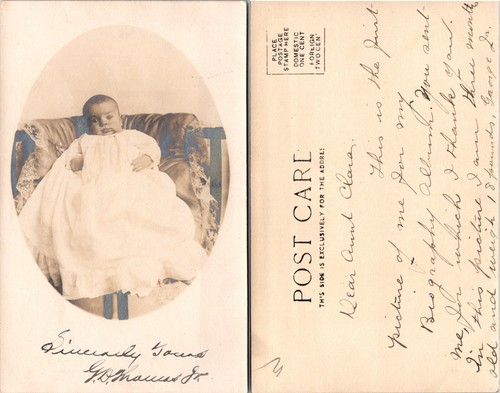 Sincerely Yours
G.D. Thomas Jr.
PLACE
POSTAGE
STAMP HERE
DOMESTIC
ONE CENT
FOREIGN
TWO CENT
POST CARD
THIS SIDE IS EXCLUSIVELY FOR THE ADDRE
Dear Aunt Clara,
This is the first
picture of me for my
Biography Album. You sent
me, for which I thank you.
In this picture I am three months
old and weigh pounds, George Jr.